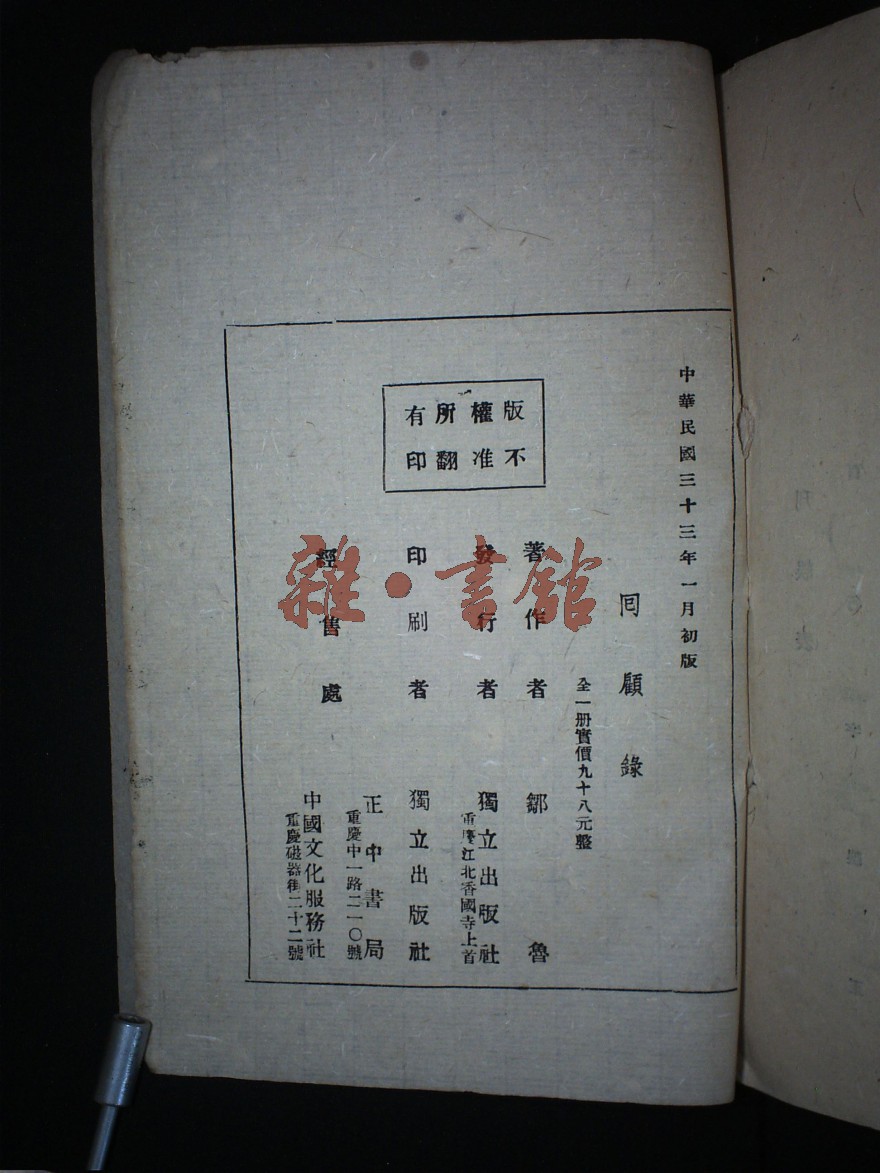 中華民國三十三年一月初版
回顧錄
全一册實價九十八元整
版權所有
不准翻印
著作者 鄒魯
發行者 獨立出版社
重慶江北香國寺上首
印刷者 獨立出版社
經售處 正中書局
重慶中一路二一〇號
中國文化服務社
重慶磁器街二十二號
雜·書館